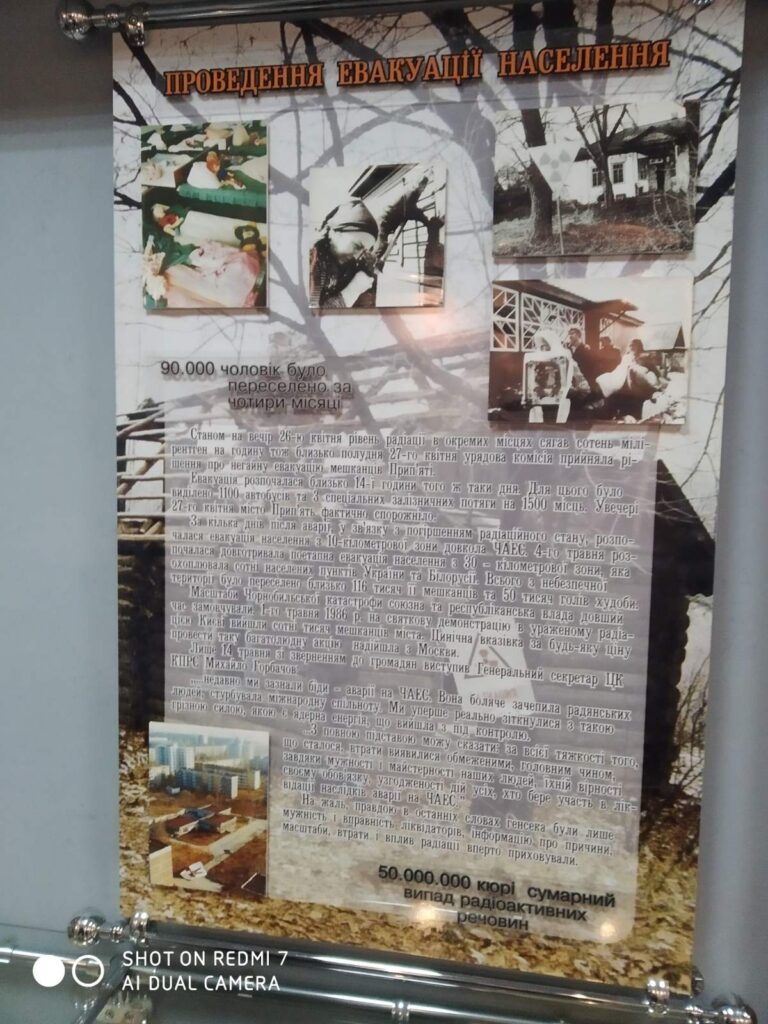 ПРОВЕДЕННЯ ЕВАКУАЦІЇ НАСЕЛЕННЯ
90.000 чоловік було
переселено за
чотири місяці
Станом на вечір 26-ю квітня рівень радіації в окремих місцях сягав сотень мілі-
рентген на годину тож близько полудня 27-го квітня урядова комісія прийняла рі-
шення про негайну евакуацію мешканців Прип'яті.
Евакуація розпочалася близько 14-ї години того ж таки дня. Для цього було
виділено 1100 автобусів та 3 спеціальних залізничних потяги на 1500 місць. Увечері
27-го квітня місто Прип'ять фактично спорожніло.
За кілька днів після аварії, у зв'язку з погіршенням радіаційного стану, розпо-
чалася евакуація населення з 10-кілометрової зони довкола ЧАЕС. 4-го травня роз-
почалася довготривала поетапна евакуація населення з 30 - кілометрової зони, яка
охоплювала сотні населених пунктів України та Білорусії. Всього з небезпечної
території було переселено близько 116 тисяч її мешканців та 50 тисяч голів худоби.
Масштаби Чорнобильської катастрофи союзна та республіканська влада довший
час замовчували. 1-го травня 1986 р. на святкову демонстрацію в ураженому радіа-
цією Києві вийшли сотні тисяч мешканців міста. Цинічна вказівка за будь-яку ціну
провести таку багатолюдну акцію надійшла з Москви.
Лише 14 травня зі зверненням до громадян виступив Генеральний секретар ЦК
КПРС Михайло Горбачов:
"...недавно ми зазнали біди - аварії на ЧАЕС. Вона боляче зачепила радянських
людей, стурбувала міжнародну спільноту. Ми уперше реально зіткнулися з такою
грізною силою, якою є ядерна енергія, що вийшла з під контролю.
...З повною підставою можу сказати: за всієї тяжкості того,
що сталося, втрати виявилися обмеженими, головним чином,
завдяки мужності і майстерності наших людей, їхній вірності
своєму обов'язку, узгодженості дій усіх, хто бере участь в лік-
відації наслідків аварії на ЧАЕС."
На жаль, правдою в останніх словах генсека були лише
мужність і вправність ліквідаторів, інформацію про причини,
масштаби, втрати і вплив радіації вперто приховували.
50.000.000 кюрі сумарний
випад радіоактивних
речовин
SHOT ON REDMI 7
AI DUAL CAMERA